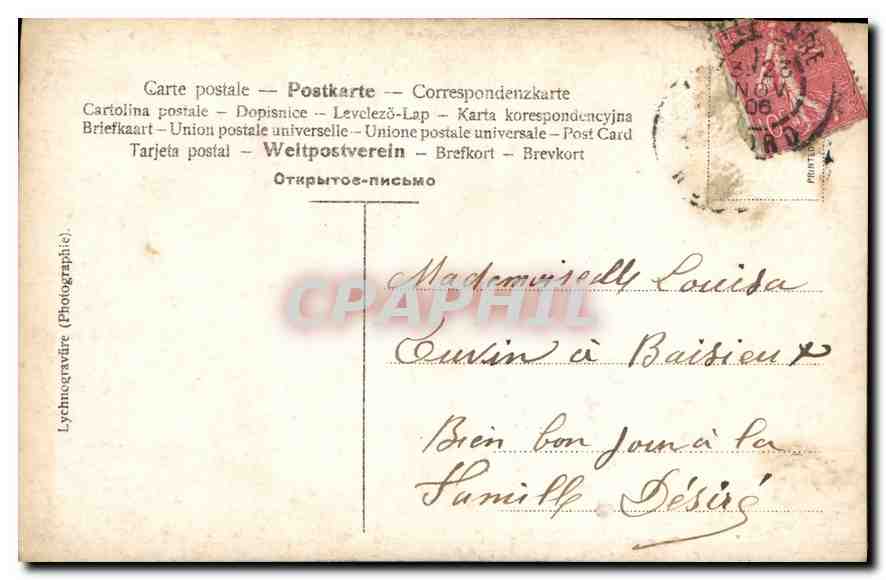 Carte postale — Postkarte — Correspondenzkarte
Cartolina postale - Dopisnice - Levelező-Lap - Karta korespondencyjna
Briefkaart - Union postale universelle - Unione postale universale - Post Card
Tarjeta postal — Weltpostverein — Brefkort - Brevkort
Открытое-письмо
Lychnogravüre (Photographie).
23
NOV
06
CPAPHIL
Mademoiselle Louisa
Cuvin à Baisieux
Bien bon jour à la
Famille Désiré